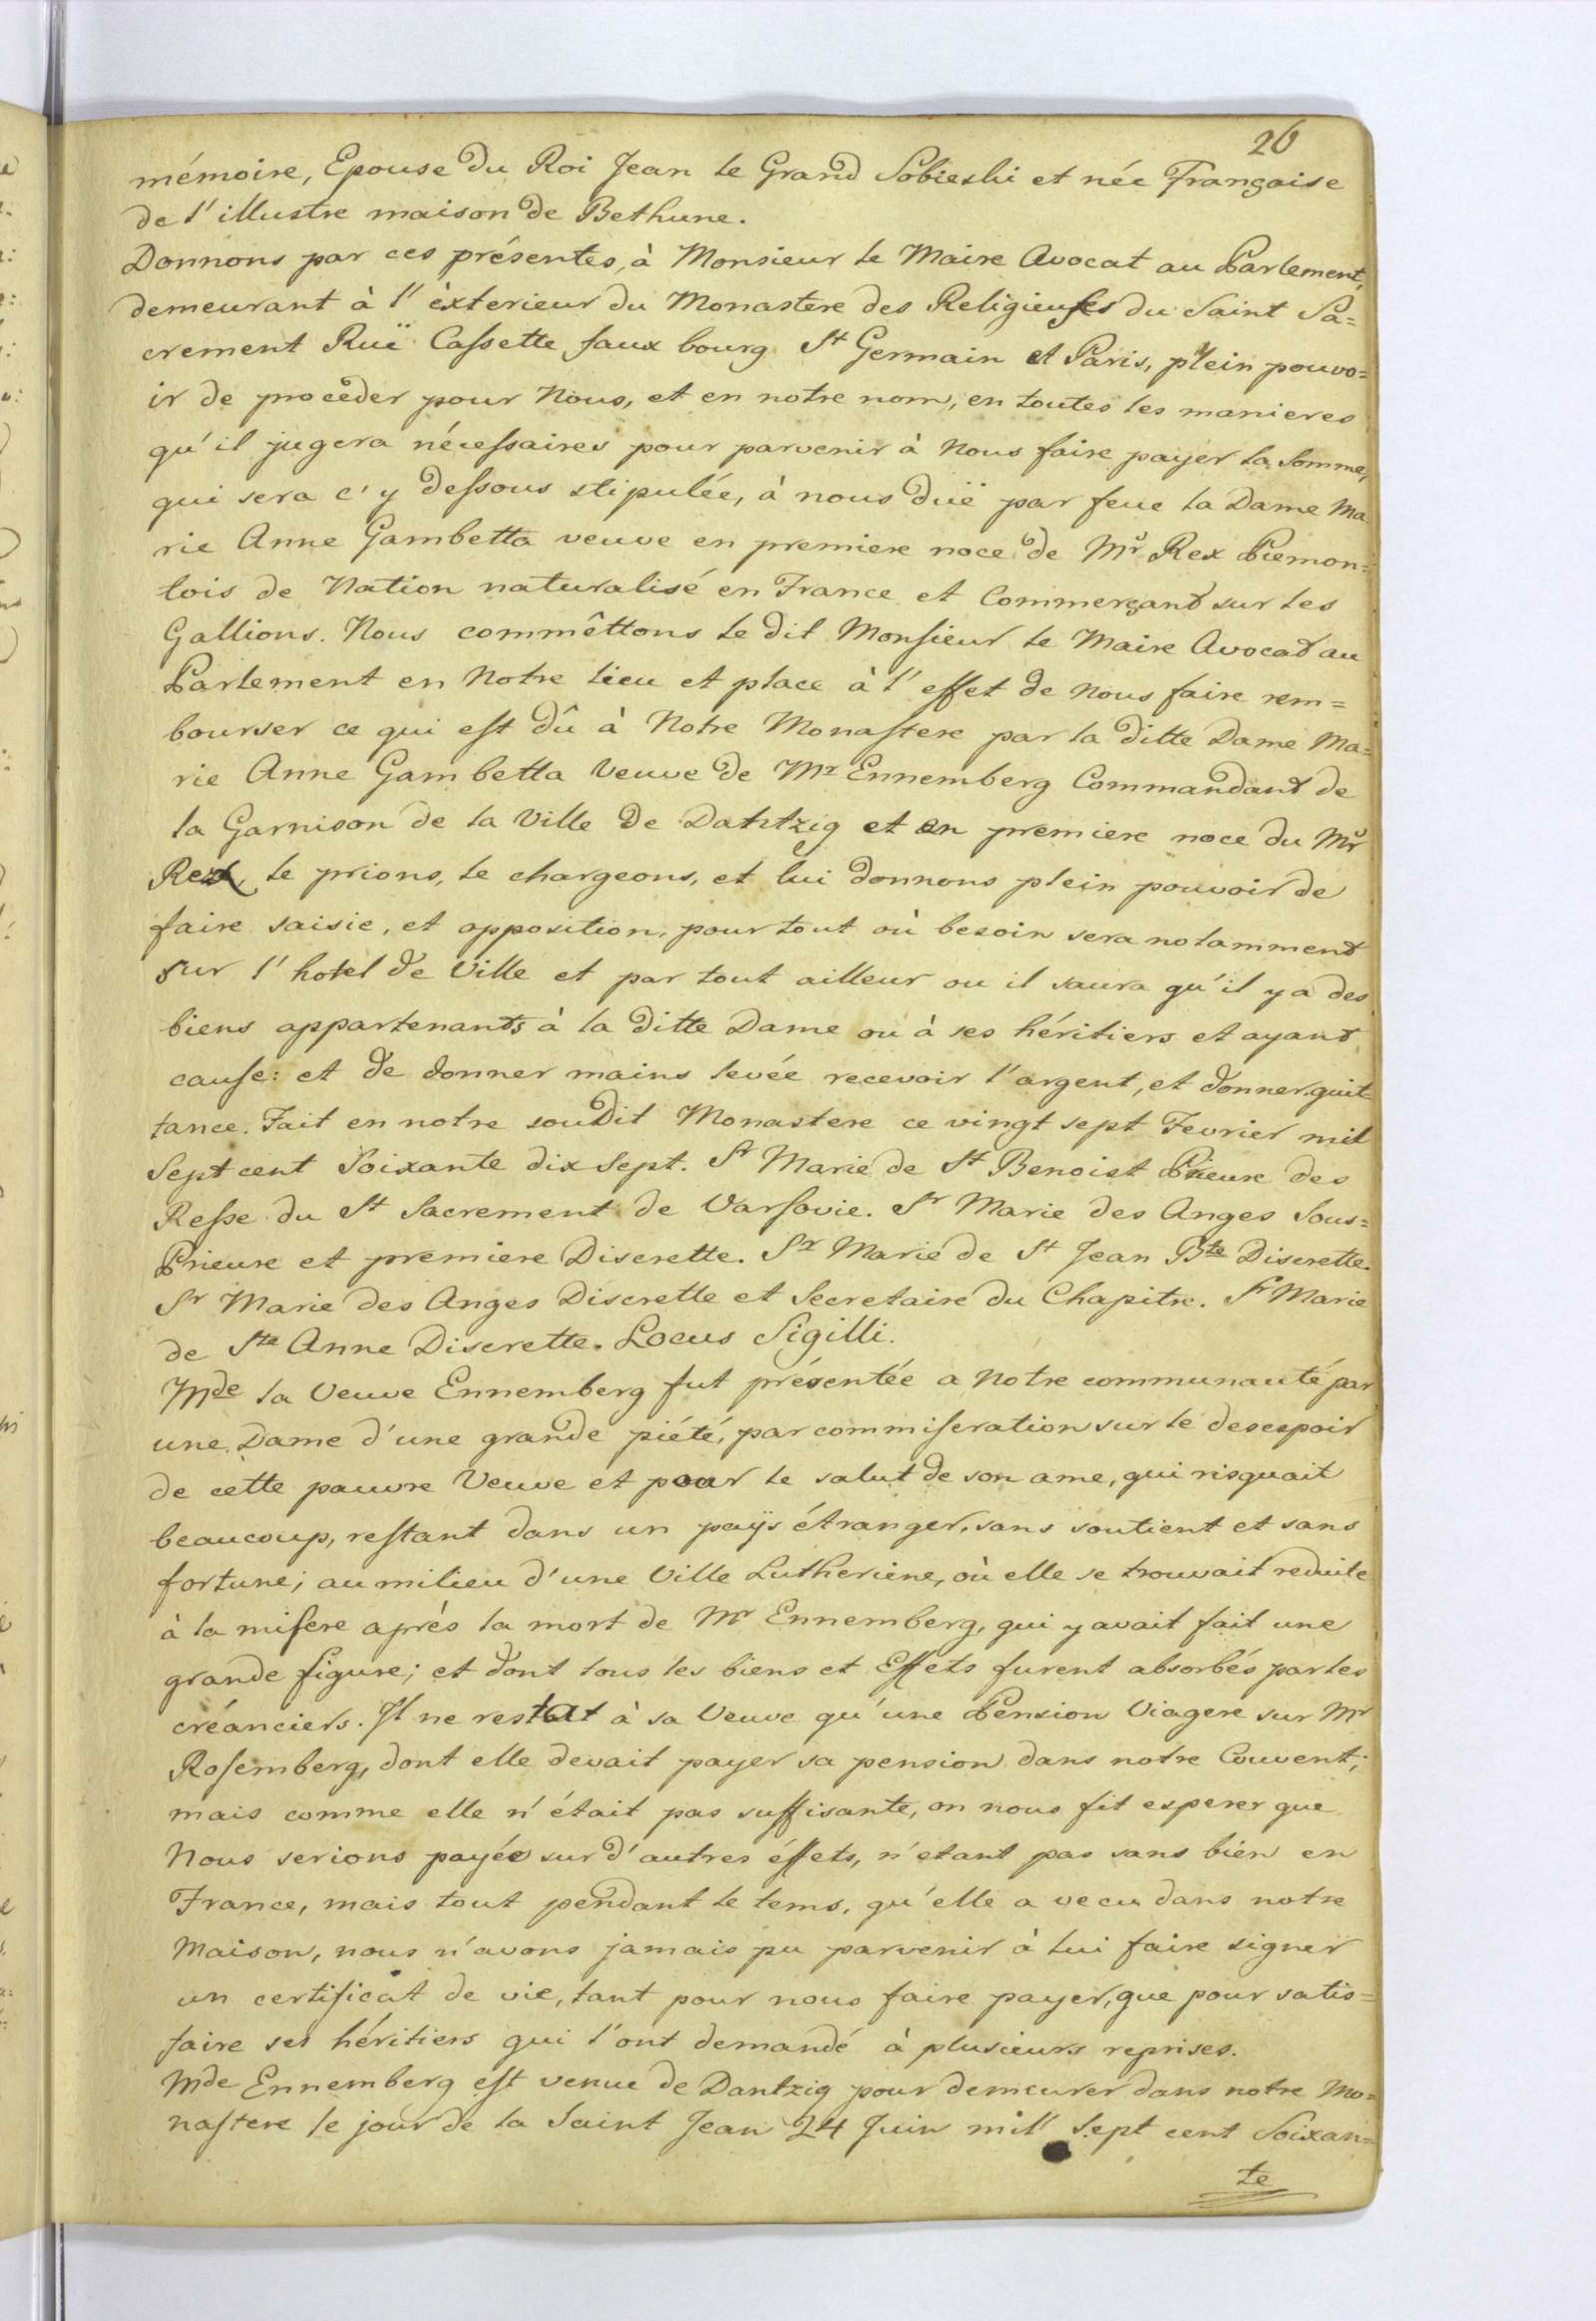 26
mémoire, Epouse du Roi Jean le Grand Sobieski et née Française
de l'illustre maison de Bethune.
Donnons par ces présentes, à Monsieur le Maire Avocat au Parlement,
demeurant à l'èxterieur du Monastere des Religieuses du Saint Sa=
crement Ruë Cassette faux bourg St Germain et Paris, plein pouvo=
ir de procèder pour Nous, et en notre nom, en toutes les manieres
qu'il jugera nécessaires pour parvenir à Nous faire payer la Somme,
qui sera c'y dessous stipulée, à nous duë par feue la Dame Ma
rie Anne Gambetta veuve en premiere noce de Mr Rex Piemon=
tois de Nation naturalisé en France et Commerçant sur les
Gallions. Nous commêttons le dit Monsieur le Maire Avocat au
Parlement en Notre lieu et place à l'effet de Nous faire rem=
bourser ce qui est dû à Notre Monastere par la ditte Dame Ma=
rie Anne Gambetta Veuve de Mr Ennemberg Commandant de
la Garnison de la Ville de Dantzig et en premiere noce du Mr
Rex, le prions, le chargeons, et lui donnons plein pouvoir de
faire saisie, et opposition, pour tout où besoin sera notamment
sur l'hotel de Ville et par tout ailleur ou il saura qu'il y a des
biens appartenants à la ditte Dame ou à ses héritiers et ayant
cause: et de donner mains levée recevoir l'argent, et donner quit
tance. Fait en notre soudit Monastere ce vingt sept Fevrier mil
Sept cent Soixante dix Sept. Sr Marie de St Benoist Prieure des
Resse du St Sacrement de Varsovie. Sr Marie des Anges Sous=
Prieure et premiere Discrette. Sr Marie de St Jean Bte Discrette.
Sr Marie des Anges Discrette et Secretaire du Chapitre. Sr Marie
de Ste Anne Discrette. Locus Sigilli.
Mde la Veuve Ennemberg fut présentée a Notre communauté par
une Dame d'une grande piété, par commiseration sur le desespoir
de cette pauvre Veuve et pour le salut de son ame, qui risquait
beaucoup, restant dans un paÿs étranger, sans soutient et sans
fortune; au milieu d'une Ville Lutheriene, où elle se trouvait reduite
à la misere après la mort de Mr Ennemberg, qui y avait fait une
grande figure; et dont tous les biens et Effets furent absorbés par les
créanciers. Il ne restat à sa Veuve qu'une Pension Viagere sur Mr
Rosemberg, dont elle devait payer sa pension dans notre Couvent;
mais comme elle n'était pas suffisante, on nous fit esperer que
Nous serions payée sur d'autres éffets, n'etant pas sans bien en
France, mais tout pendant le tems, qu'elle a vecu dans notre
Maison, nous n'avons jamais pu parvenir à lui faire signer
un certificat de vie, tant pour nous faire payer, que pour satis=
faire ses héritiers qui l'ont demandé à plusieurs reprises.
Mde Ennemberg est venue de Dantzig pour demeurer dans notre Mo=
nastere le jour de la Saint Jean 24 Juin mil Sept cent Soixan=
te